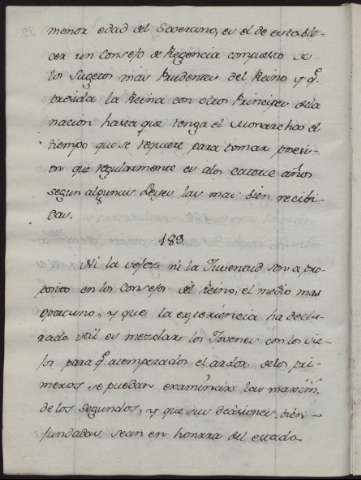 menor edad del Soverano, es el de estable-
cer un Consejo de Regencia compuesto de
los Sugetos mas Prudentes del Reino y q.e
presida la Reina con otros Principes de la
nación hasta que tenga el Monarcha el
tiempo que se requiere para tomar posesi-
on que regularmente es a los catorce años
segun algunas Leyes las mas bien recibi-
das.
183
Ni la vejez ni la Juventud son a pro-
posito en los Consejos del Reino; el medio mas
oportuno, y que la experiencia ha decla-
rado util es mezclar los Jovenes con los vie-
jos para q.e atemperados el ardor de los pri-
meros se puedan examinar las maxim.s
de los segundos, y que sus decisiones bien
fundadas sean en honrra del estado